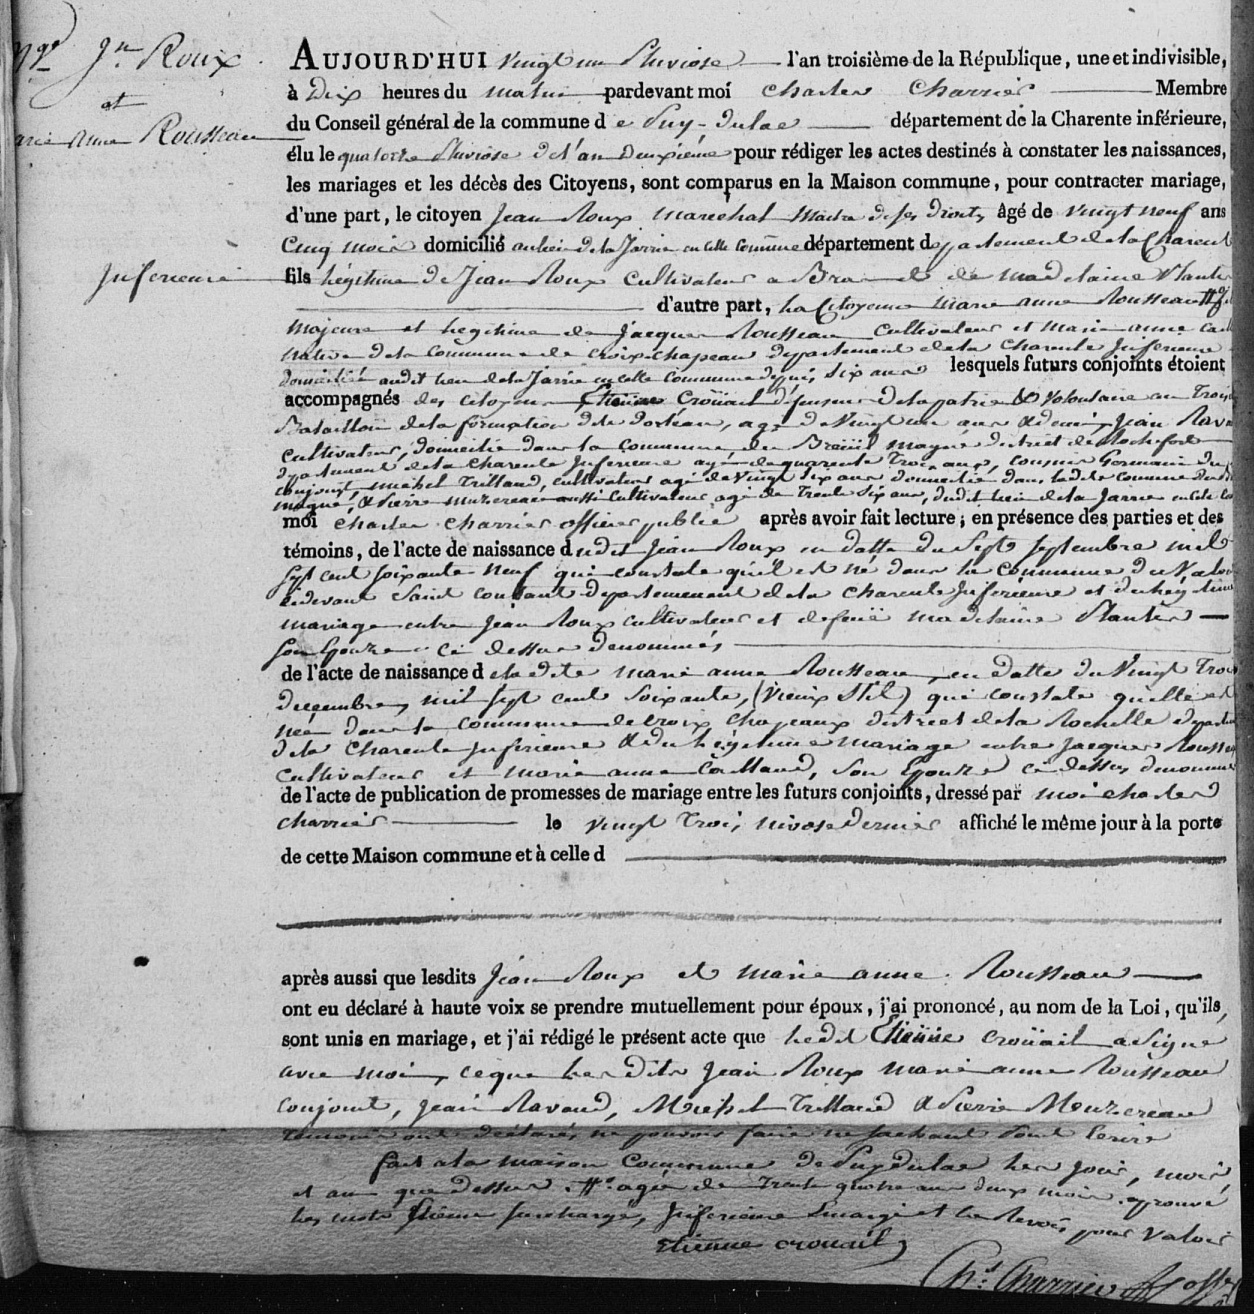 Mge Jn Roux
et
marie anne Rousseau
AUJOURD'HUI vingt un Pluviose l'an troisième de la République, une et indivisible,
à Dix heures du matin pardevant moi Charles Charrier Membre
du Conseil général de la commune d e Puy-Dulac département de la Charente inférieure,
élu le quatorze Pluviose de l'an Deuxiéme pour rédiger les actes destinés à constater les naissances,
les mariages et les décès des Citoyens, sont comparus en la Maison commune, pour contracter mariage,
d'une part, le citoyen Jean Roux marechal Maitre de ses Droits âgé de vingt neuf ans
Cinq mois domicilié au lieu de la Jarrie en cette Commune département departement de la Charente
Inferieure fils légitime de Jean Roux Cultivateur a et de madelaine Plantes
d'autre part, la Citoyenne marie anne Rousseau ##
majeure et legitime de Jacques Rousseau Cultivateur et Marie anne
native de la Commune de croix-chapeau departement de la Charente Inferieure
domiciliée audit lieu de la Jarrie en cette Commune depuis six ans lesquels futurs conjoints étoient
accompagnés des citoyens Etienne Croüail défenseur de la patrie & Volontaire au Trois
Bataillon de la formation de agé de vingt un ans & demi, Jean Rava
cultivateur, domicilié dans la Commune du Breüil magné district de Rochefort
departement de la Charente Inferieure agé de quarente Trois ans, cousin Germain du
conjoint, michel Trillaud, cultivateur agé de vingt six ans domicilié dans ladite Commune du
magné, & Pierre muzereau aussi Cultivateur agé de Trente six ans, dudit lieu de la Jarrie en cette
moi Charles Charrier officier public après avoir fait lecture ; en présence des parties et des
témoins, de l'acte de naissance d udit Jean Roux en datte du Sept Septembre mil
Sept cent soixante neuf qui constate qu'il est né dans la Commune du
cidevant Saint coutant departement de la Charente Inferieure et du légitime
mariage entre Jean Roux cultivateur et defeüe madelaine Plantes
son Epouze ci dessus denommés
de l'acte de naissance d eladite marie anne Rousseau, en datte du Vingt Trois
decembre, mil sept cent soixante, (Vieux Stil) qui constate quelle est
née dans la commune de croix chapeaux district de la Rochelle
de la Charente Inferieure & du légitime mariage entre Jacques Rousseau
cultivateur et marie anne Caillaud, son Epouze ci dessus denommés
de l'acte de publication de promesses de mariage entre les futurs conjoints, dressé par moi Charles
charrier le vingt Trois nivose dernier affiché le même jour à la porte
de cette Maison commune et à celle d
après aussi que lesdits Jean Roux et marie anne Rousseau
ont eu déclaré à haute voix se prendre mutuellement pour époux, j'ai prononcé, au nom de la Loi, qu'ils
sont unis en mariage, et j'ai rédigé le présent acte que ledit Etienne croüail a Signe
avec moi, ce que les dits Jean Roux marie anne Rousseau
conjoint, Jean Ravaud, Michel Trillaud & Pierre Muzereau
temoins ont déclarés ne pouvoir faire ne sachant
fait a la maison Commune de Puydulac les jour, mois,
et an que dessus. ## agée de Trente quatre ans deux mois. aprouvé
les mots Etienne surchargé, Inferieure Emargé et le Renvoi pour Valoir
Etienne crouail
Chs. Charrier